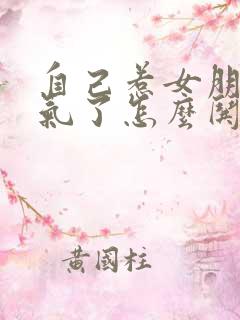 自己惹女朋
氣了怎麼開
黃國柱